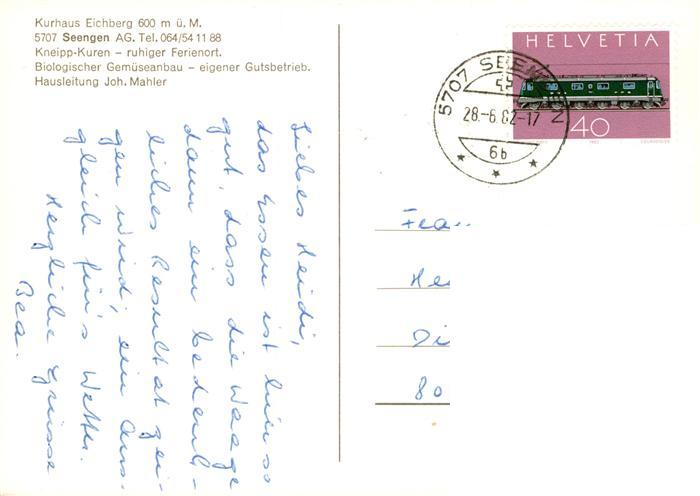 Kurhaus Eichberg 600 m ü. M.
5707 Seengen AG. Tel. 064/54 11 88
Kneipp-Kuren – ruhiger Ferienort.
Biologischer Gemüseanbau – eigener Gutsbetrieb.
Hausleitung Joh. Mahler
Liebes Heidi,
das Essen ist hier so
gut, dass die Waage
dann ein bedenk-
liches Resultat zei-
gen wird; ein Aus-
gleich für's Wetter.
Herzliche Grüsse
Bea.
5707 SEENGEN
28.-6.82-17
6b
HELVETIA
40
Frau
He
Di
80